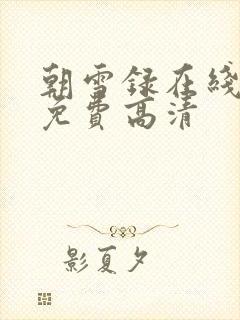 朝雪録在綫
免費高清
影夏夕